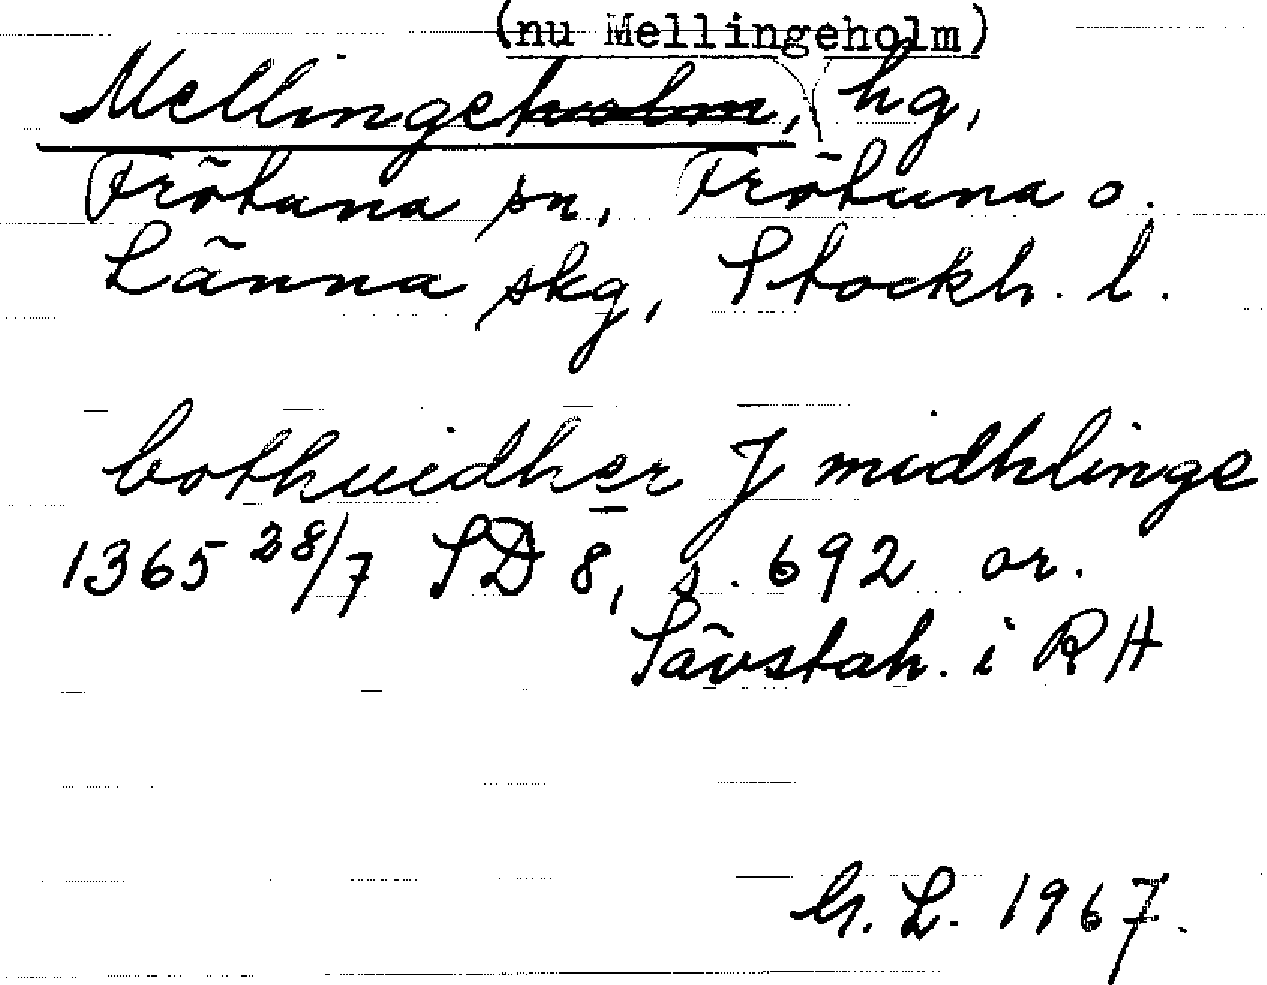 (nu Mellingeholm)
Mellingeholm, hg,
Frötuna sn, Frötuna o.
Länna skg, Stockh. l.
bothuidher J midhlinge
1365 28/7 SD 8, s. 692 or.
Sävstah. i RA
G. L. 1967.